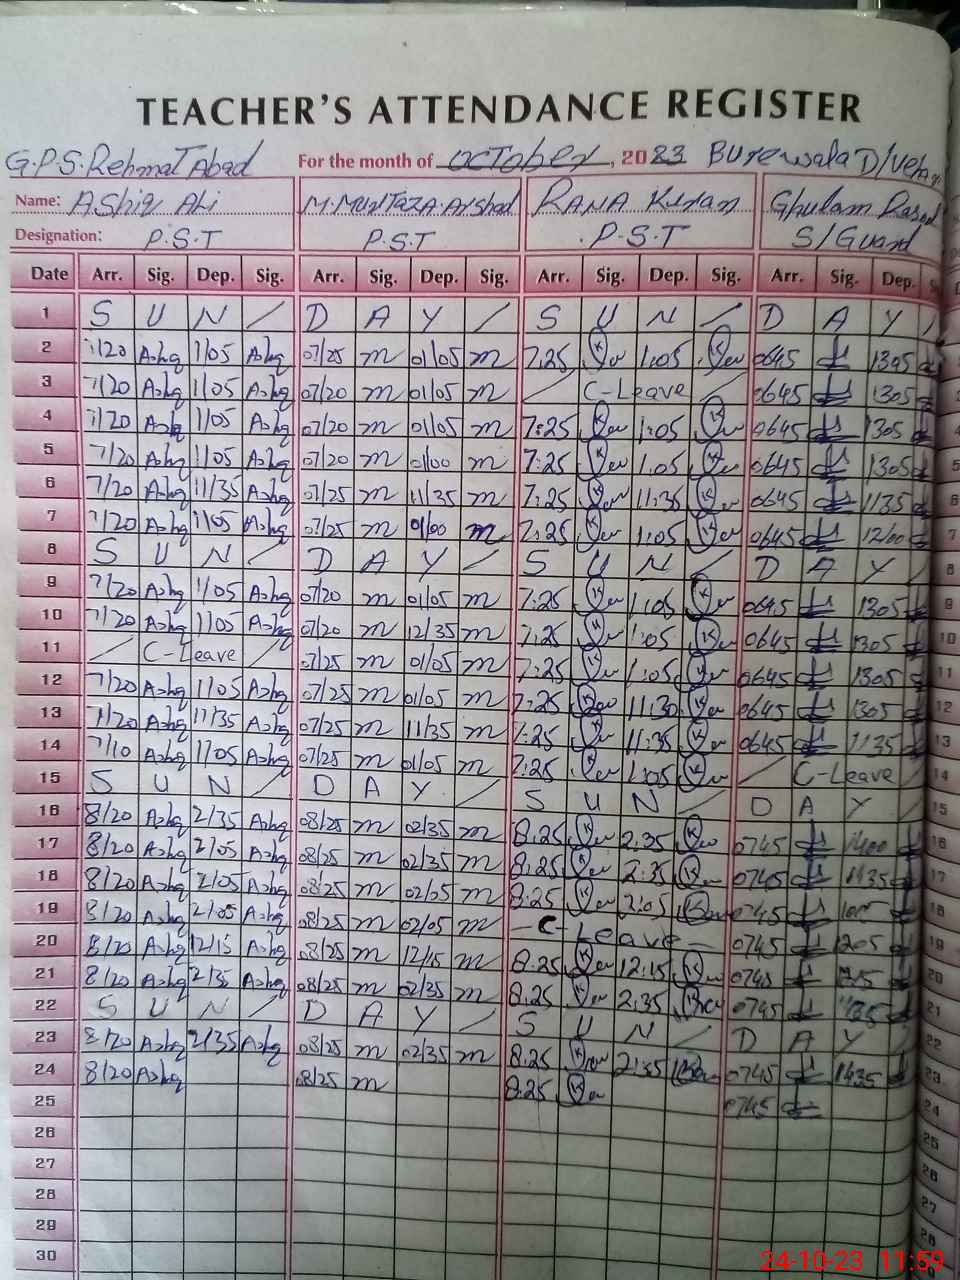 TEACHER'S ATTENDANCE REGISTER
G.P.S. Rehmat Abad For the month of october, 2023 Burewala D/Vehar
Name: Ashiq Ali M. Murtaza Arshad RANA Kiran Ghulam Rasool
Designation: P.S.T P.S.T P.S.T S/Guard
Date Arr. Sig. Dep. Sig. Arr. Sig. Dep. Sig. Arr. Sig. Dep. Sig. Arr. Sig. Dep.
1 S U N / D A Y / S U N / D A Y /
2 7/20 Ashq 1/05 Ashq 07/25 m 01/05 m 7.25 1:05 0645 1305
3 7/20 Ashq 1/05 Ashq 07/20 m 01/05 m / C-Leave / 0645 1305
4 7/20 Ashq 1/05 Ashq 07/20 m 01/05 m 7:25 1:05 0645 1305
5 7/20 Ashq 1/05 Ashq 07/20 m 01/00 m 7:25 1:05 0645 1305
6 7/20 Ashq 11/35 Ashq 07/25 m 11/35 m 7:25 11:35 0645 1135
7 7/20 Ashq 1/05 Ashq 07/25 m 01/00 m 7:25 1:05 0645 12/00
8 S U N / D A Y / S U N / D A Y /
9 7/20 Ashq 1/05 Ashq 07/20 m 01/05 m 7:25 1:05 0645 1305
10 7/20 Ashq 1/05 Ashq 07/20 m 12/35 m 7:25 1:05 0645 1305
11 / C-Leave / 07/25 m 01/05 m 7:25 1:05 0645 1305
12 7/20 Ashq 1/05 Ashq 07/25 m 01/05 m 7:25 11:30 0645 1305
13 7/20 Ashq 11/35 Ashq 07/25 m 11/35 m 7:25 11:35 0645 1135
14 7/10 Ashq 1/05 Ashq 07/25 m 01/05 m 7:25 1:05 / C-Leave /
15 S U N / D A Y / S U N / D A Y /
16 8/20 Ashq 2/35 Ashq 08/25 m 02/35 m 8.25 2:35 0745
17 8/20 Ashq 2/05 Ashq 08/25 m 02/35 m 8:25 2:35 0745 1435
18 8/20 Ashq 2/05 Ashq 08/25 m 02/05 m 8:25 2:05 0745
19 8/20 Ashq 2/05 Ashq 08/25 m 02/05 m - C-Leave - 0745 1205
20 8/20 Ashq 12/15 Ashq 08/25 m 12/15 m 8.25 12:15 0745
21 8/20 Ashq 2/35 Ashq 08/25 m 02/35 m 8.25 2:35 0745
22 S U N / D A Y / S U N / D A Y /
23 8/20 Ashq 2/35 Ashq 08/25 m 02/35 m 8:25 2:35 0745 1435
24 8/20 Ashq 08/25 m 8.25 0745
25
26
27
28
29
30
24-10-23 11:59